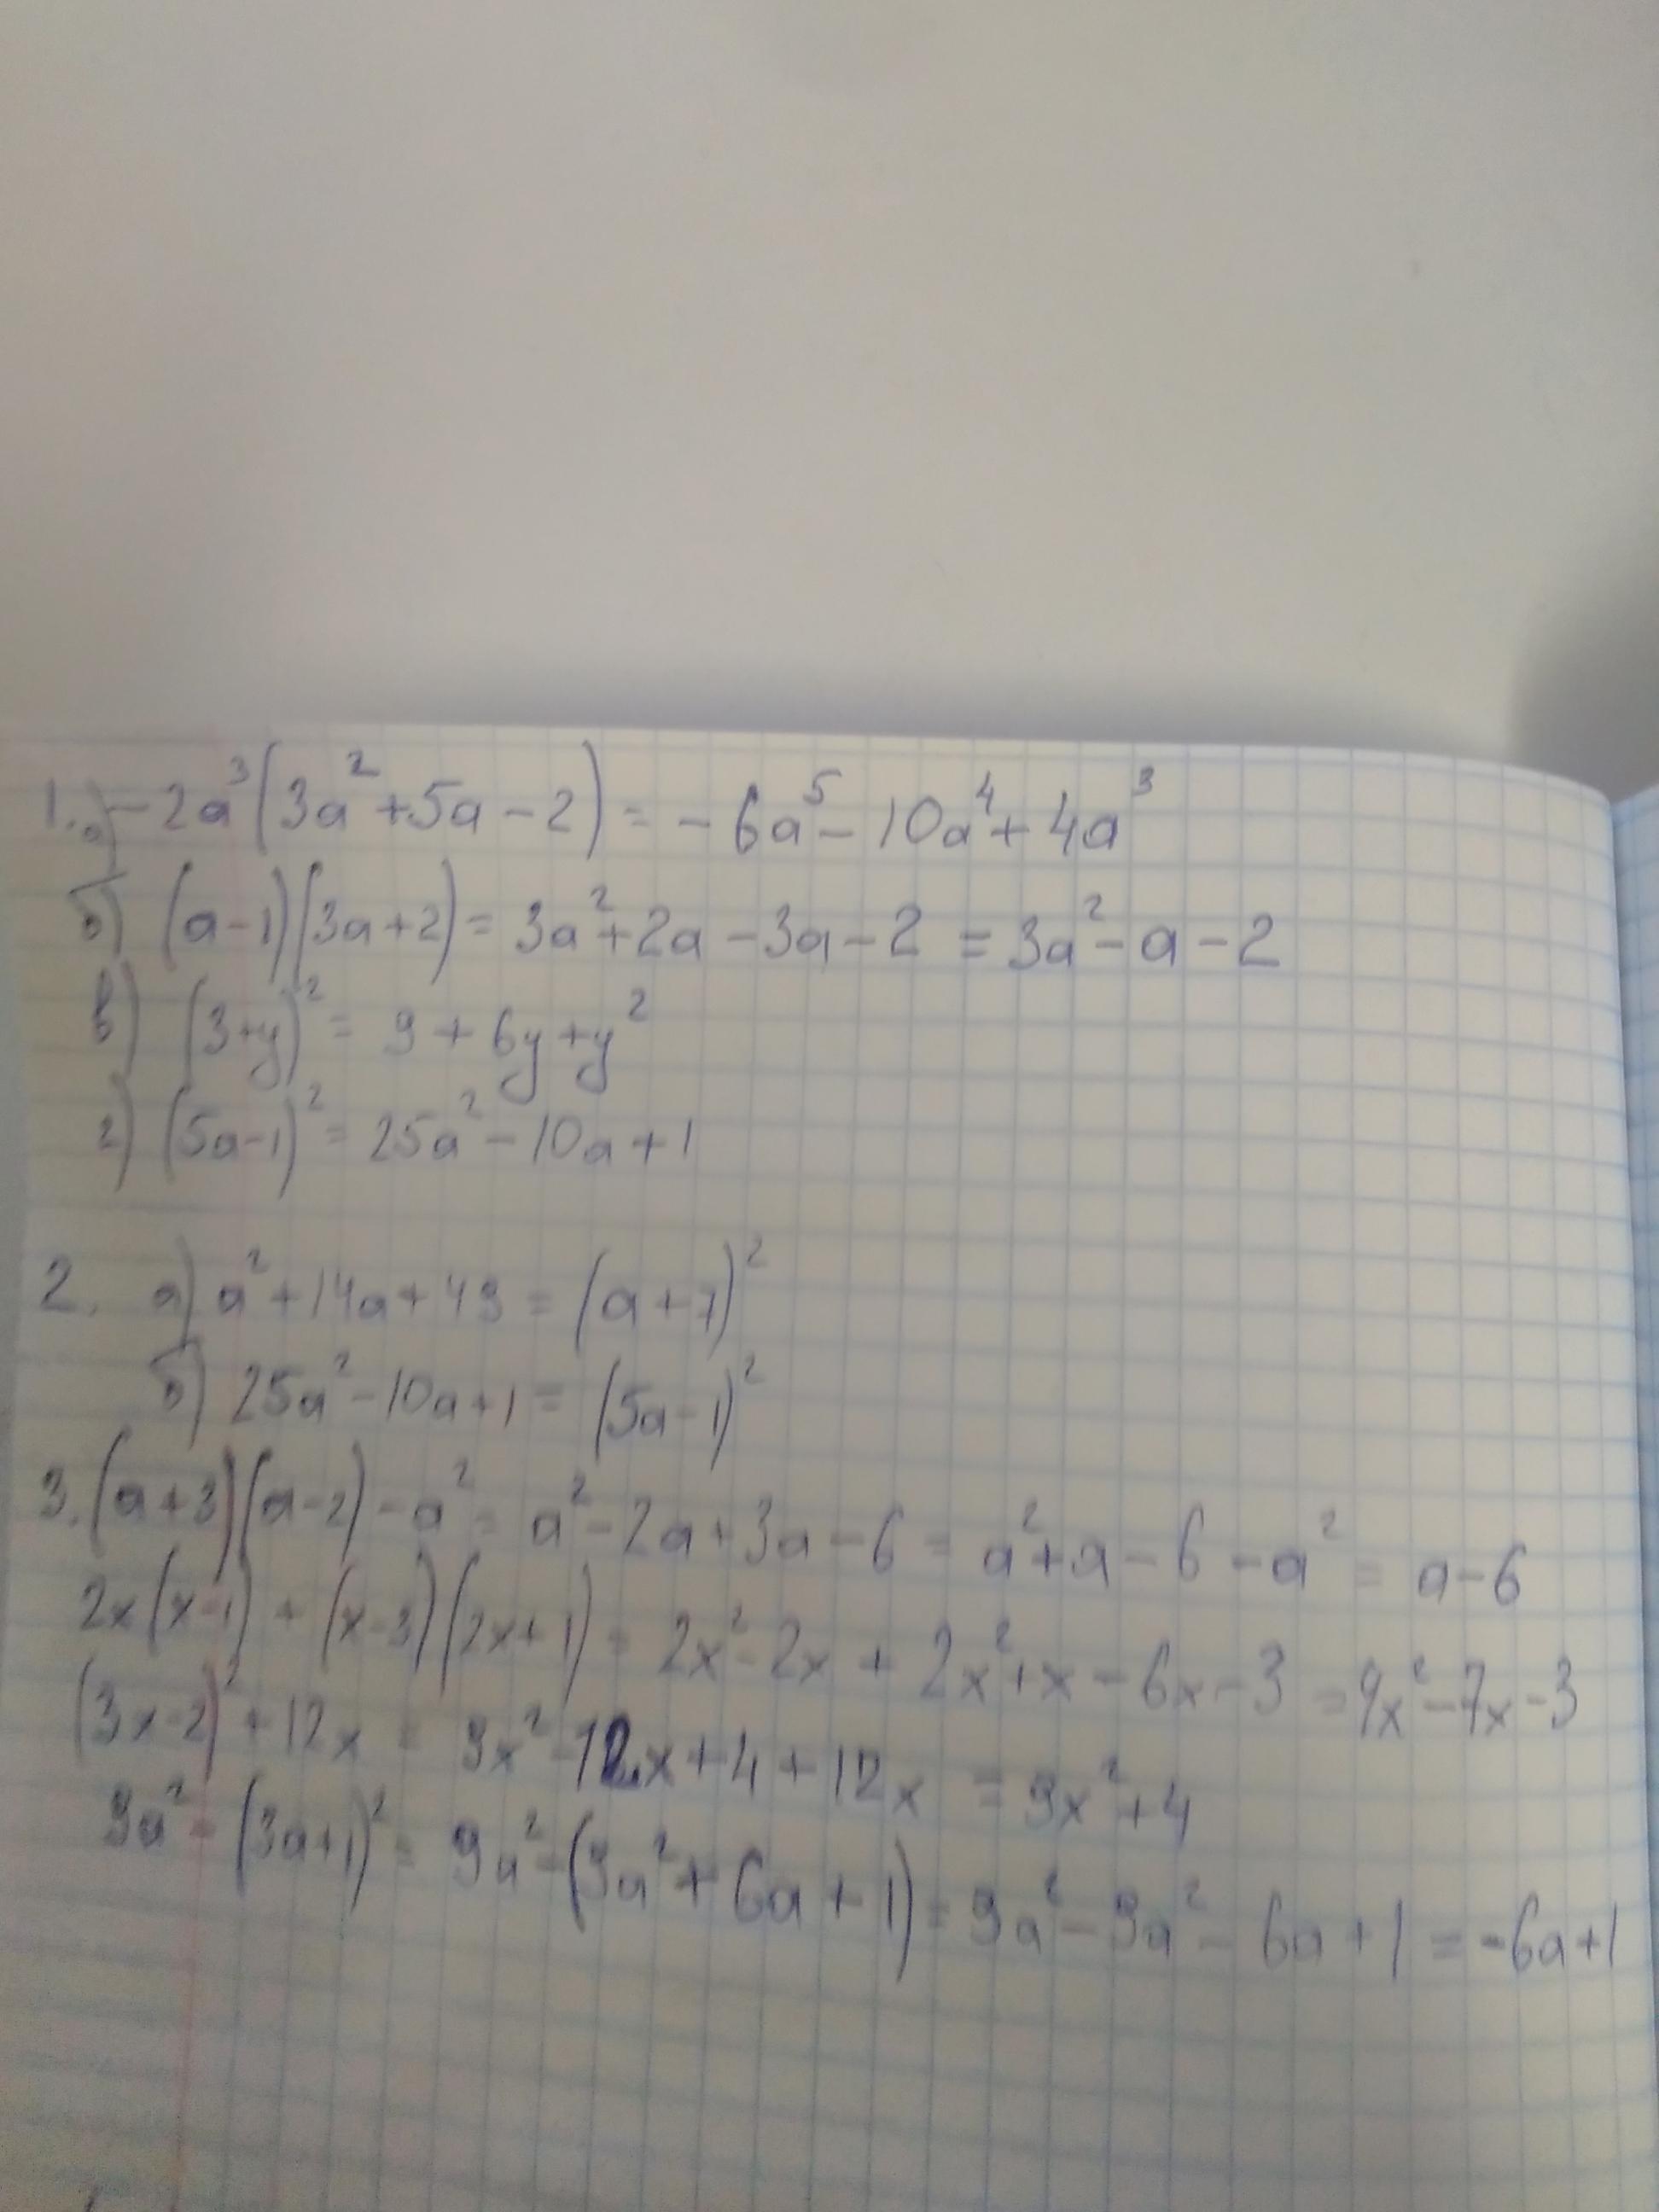 1. а) -2a³(3a²+5a-2) = -6a⁵-10a⁴+4a³
б) (a-1)(3a+2) = 3a²+2a-3a-2 = 3a²-a-2
в) (3+y)² = 9+6y+y²
г) (5a-1)² = 25a²-10a+1
2. а) a²+14a+49 = (a+7)²
б) 25a²-10a+1 = (5a-1)²
3. (a+3)(a-2)-a² = a²-2a+3a-6 = a²+a-6-a² = a-6
2x(x-1)+(x-3)(2x+1) = 2x²-2x+2x²+x-6x-3 = 4x²-7x-3
(3x-2)²+12x = 9x²-12x+4+12x = 9x²+4
9a²-(3a+1)² = 9a²-(9a²+6a+1) = 9a²-9a²-6a+1 = -6a+1